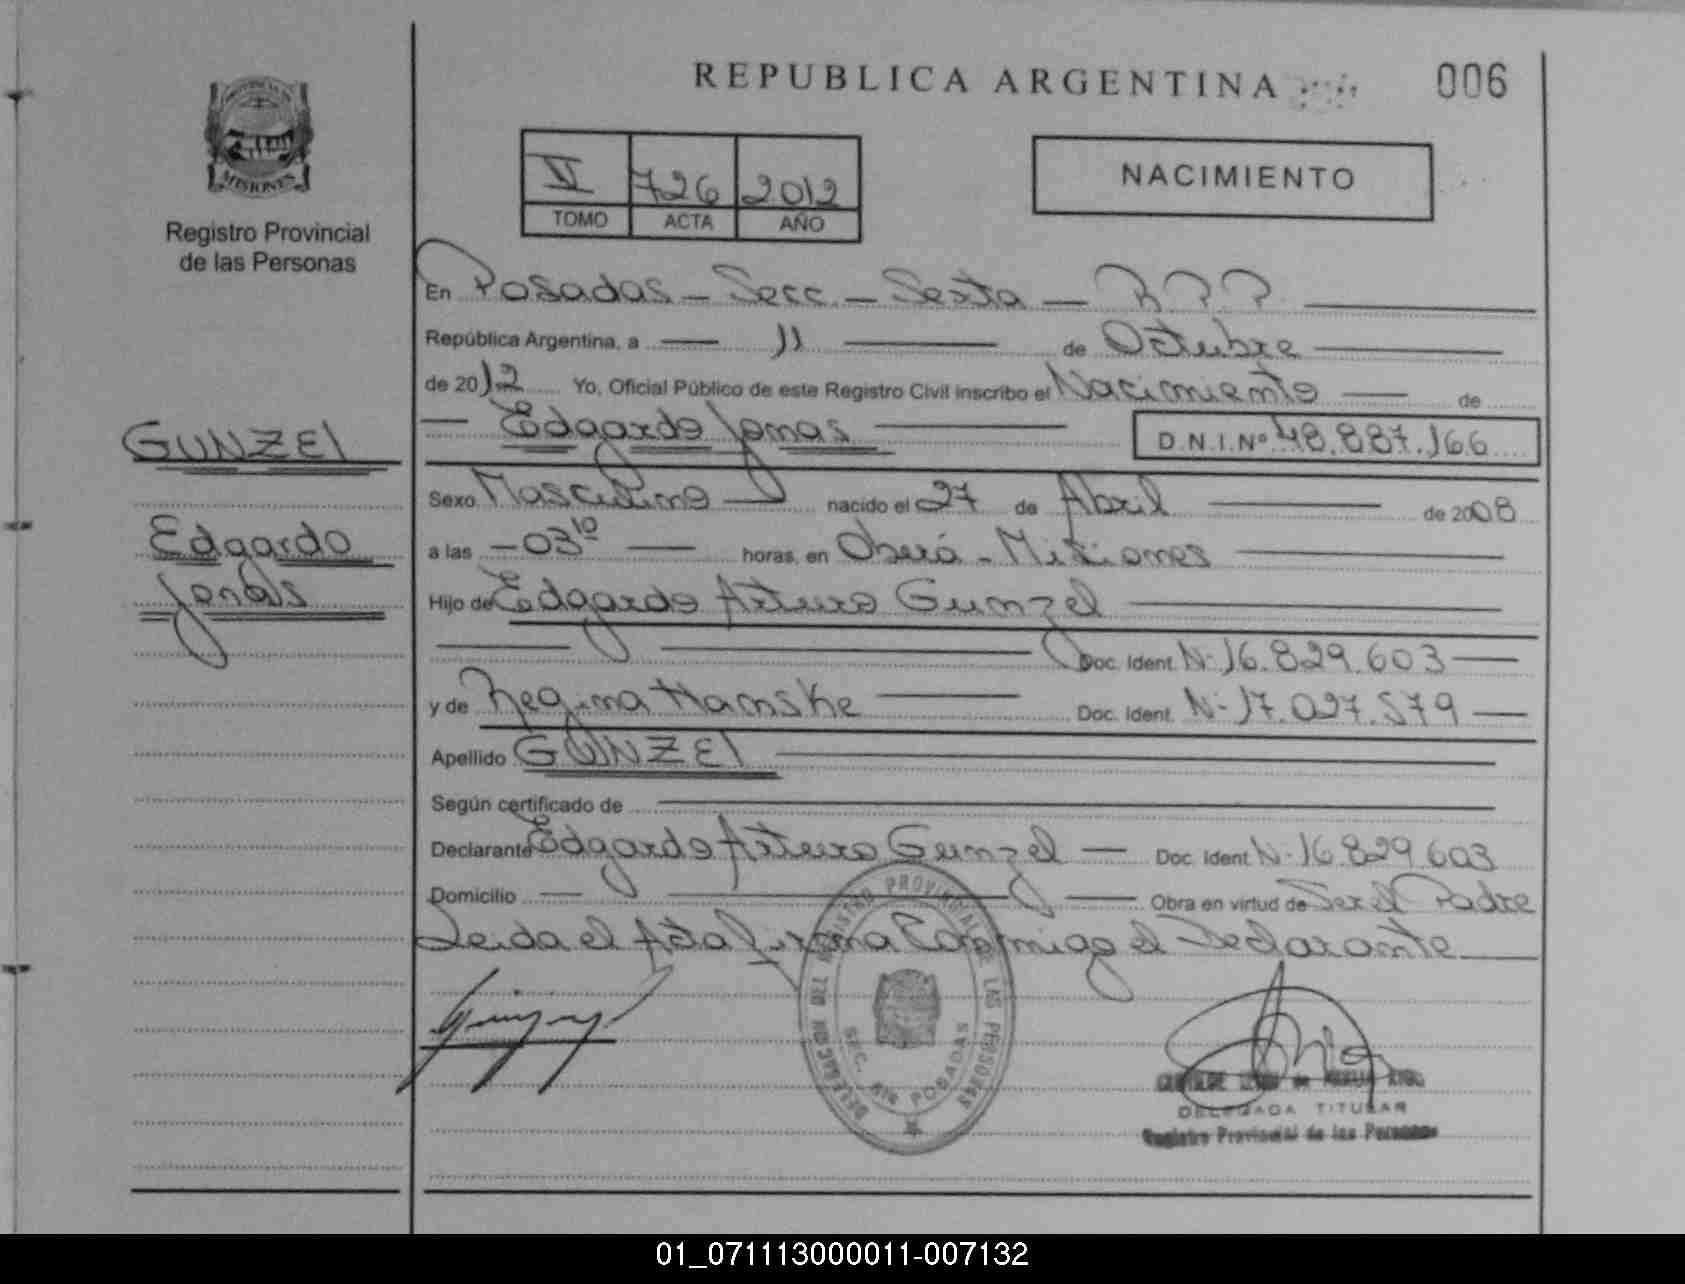 REPUBLICA ARGENTINA
006
PROVINCIA DE
MISIONES
Registro Provincial
de las Personas
VI 726 2012
TOMO ACTA AÑO
NACIMIENTO
En Posadas - Secc - Sexta - R P P
República Argentina, a 11 de Octubre
de 2012 Yo, Oficial Público de este Registro Civil inscribo el Nacimiento de
Edgardo Jonas D.N.I.Nº 48.887.166
GUNZEl
Edgardo
Jonas
Sexo Masculino nacido el 27 de Abril de 2008
a las -03¹⁰ horas, en Oberá - Misiones
Hijo de Edgardo Arturo Gunzel
Doc. Ident. Nº 16.829.603
y de Regina Hamske Doc. Ident. Nº 17.027.579
Apellido GUNZEl
Según certificado de
Declarante Edgardo Arturo Gunzel Doc. Ident. Nº 16.829.603
Domicilio Obra en virtud de Ser el Padre
Leida el Acta firma Conmigo el Declarante
DELEGACION DEL REGISTRO PROVINCIAL DE LAS PERSONAS
SEC. POSADAS
DELEGADA TITULAR
Registro Provincial de las Personas
01_071113000011-007132